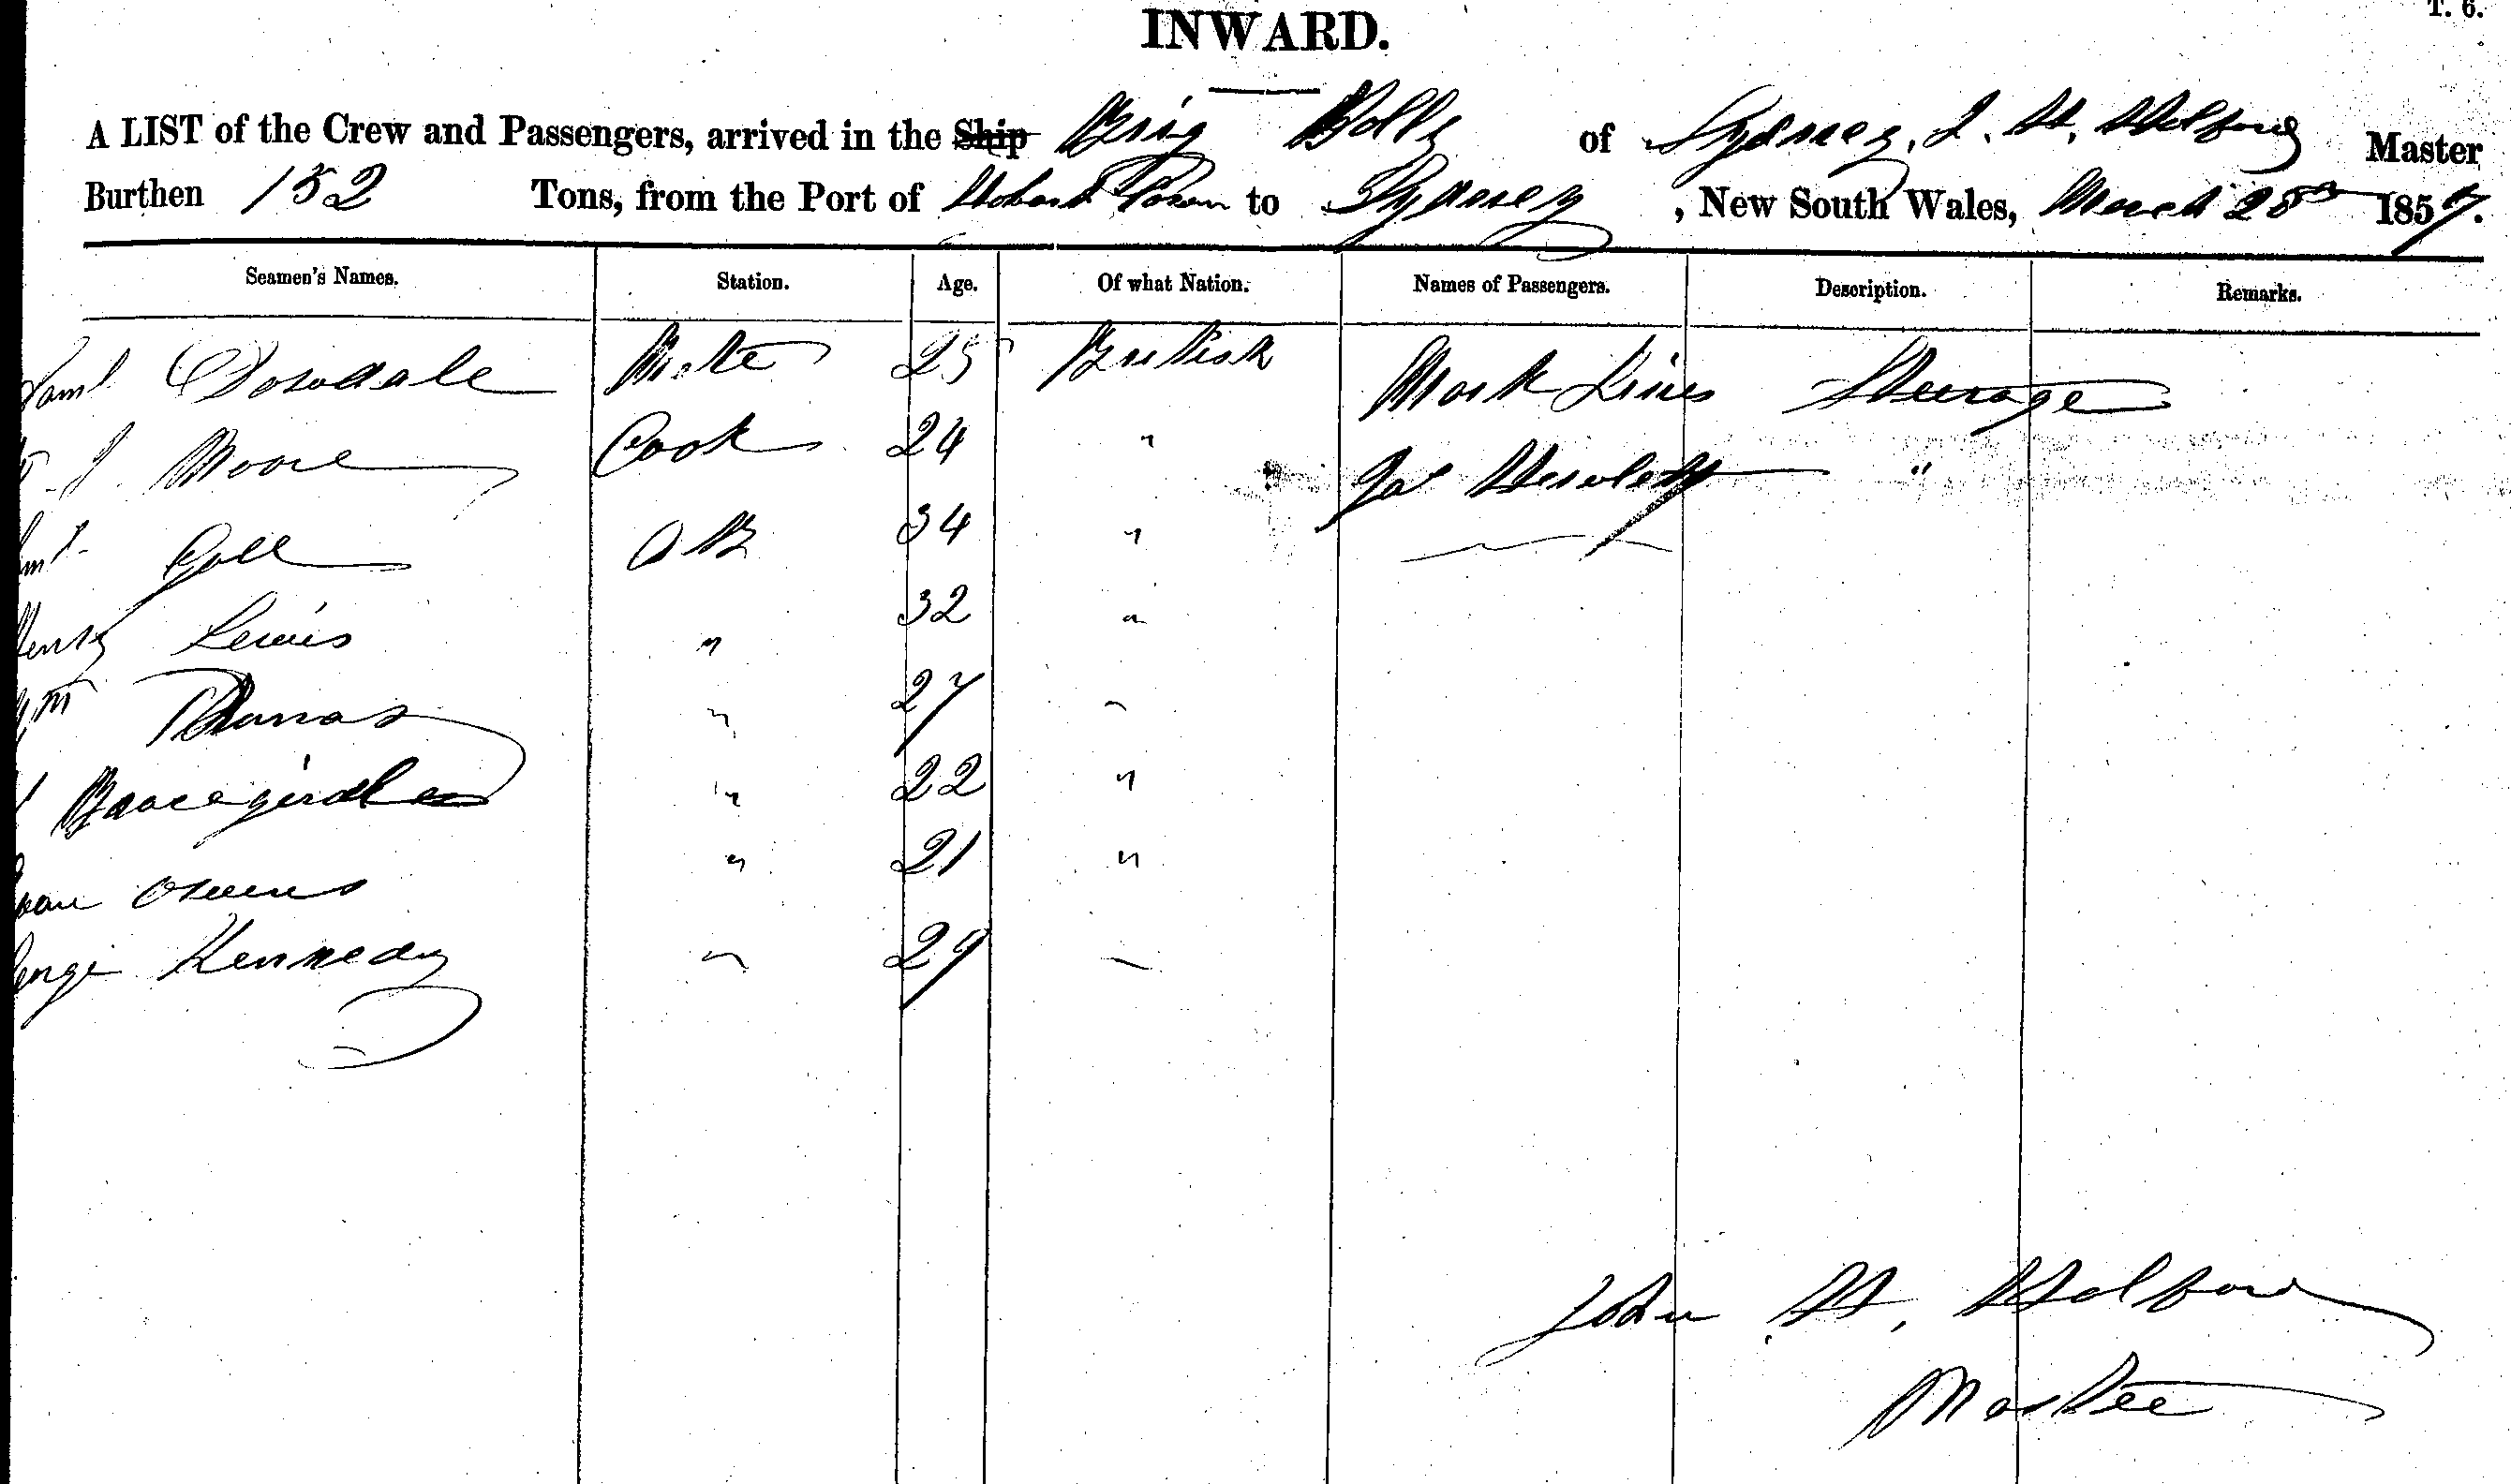 T. 6.
INWARD.
A LIST of the Crew and Passengers, arrived in the Ship Brig of Sydney, J. H. Master
Burthen 152 Tons, from the Port of Hobart Town to Sydney, New South Wales, March 28th 1857.
Seamen's Names. Station. Age. Of what Nation. Names of Passengers. Description. Remarks.
Saml Mate 25 British Mark Lines Steerage
J. Moore Cook 24 " Jas Hewlett "
Gall AB 34 "
Henry Lewis " 32 "
Wm Thomas " 27 "
Bracegirdle " 22 "
Owens " 21 "
George Kennedy " 29 "
John H. Holford
Master